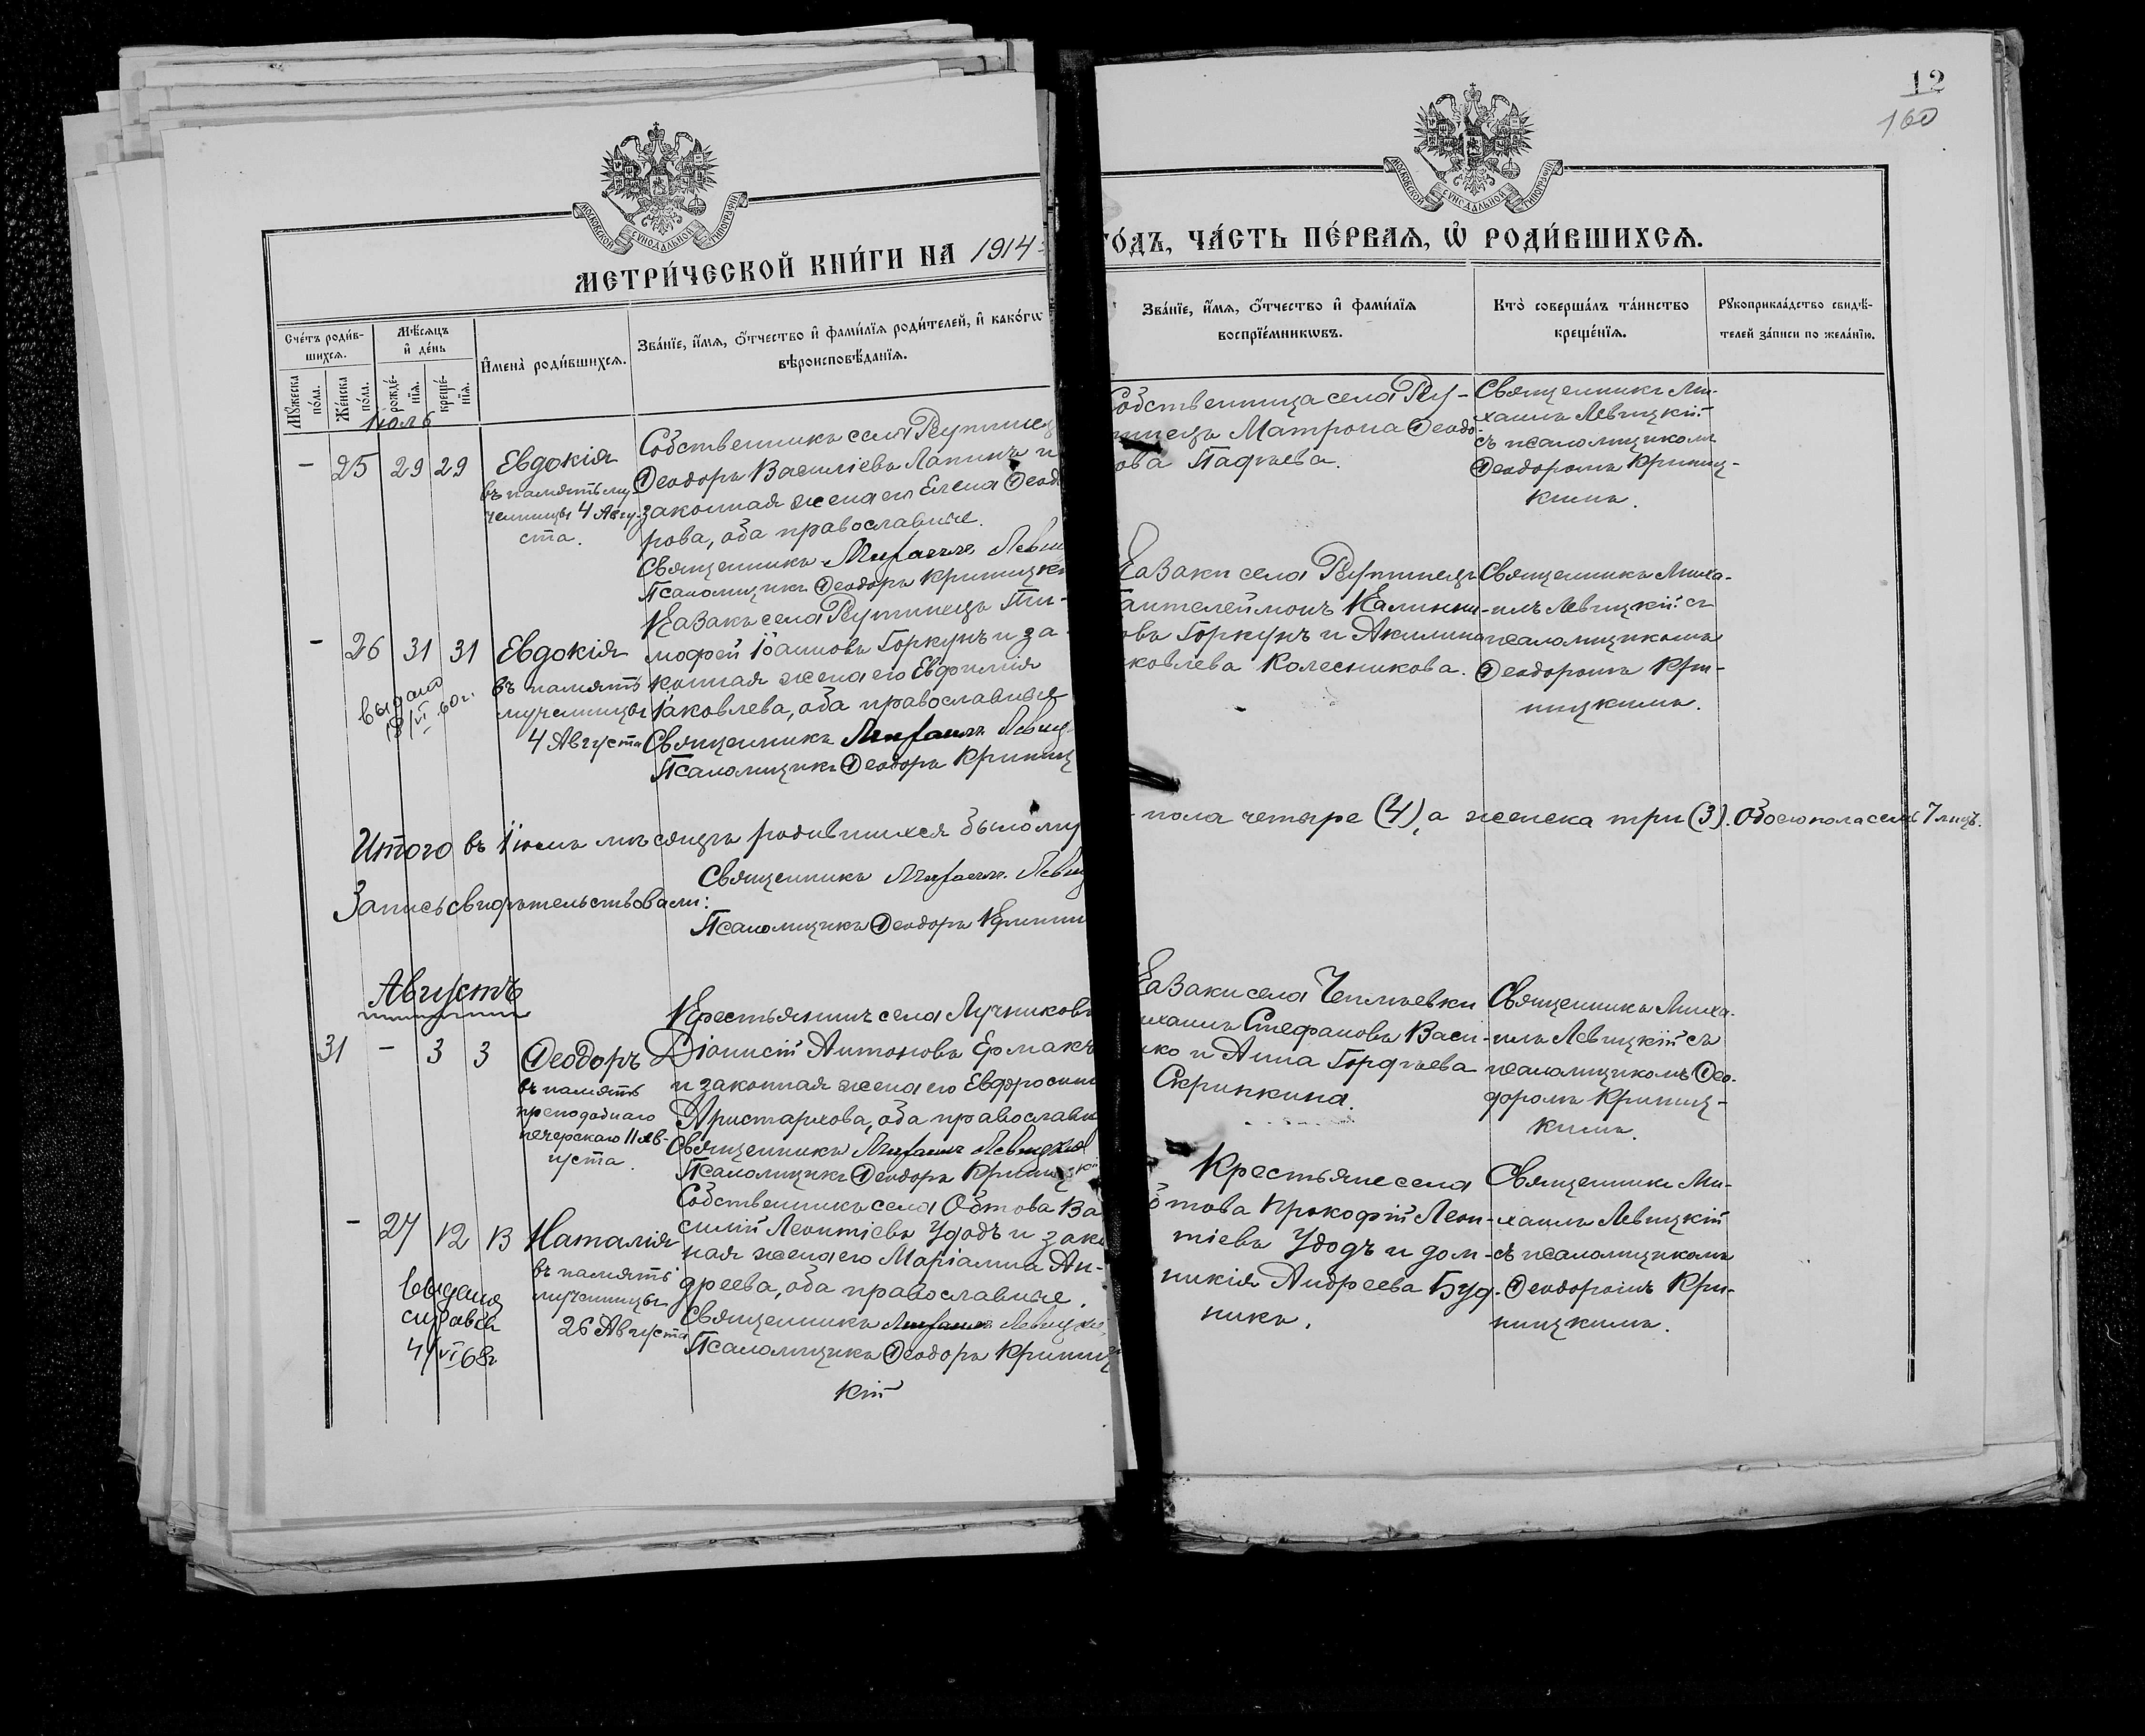 12
160
МОСКОВСКОЙ СУНОДАЛЬНОЙ ТИПОГРАФІИ
МОСКОВСКОЙ СУНОДАЛЬНОЙ ТИПОГРАФІИ
МЕТРИ́ЧЕСКОЙ КНИ́ГИ НА 1914
ГО́ДЪ, ЧА́СТЬ ПЕ́РВАѦ, Ѽ РОДИ́ВШИХСѦ.
Сче́тъ роди́в-
шихсѧ.
Мꙋ́жеска по́ла.
Же́нска по́ла.
Мѣ́сѧцъ и҆ де́нь
рожде́-
нїѧ.
креще́-
нїѧ.
И҆мена̀ роди́вшихсѧ.
Зва́нїе, и҆́мѧ, ѻ҆́тчество и҆ фами́лїѧ роди́телей, и҆ како́гѡ
вѣроисповѣ́данїѧ.
Зва́нїе, и҆́мѧ, ѻ҆́тчество и҆ фами́лїѧ
воспрїе́мникѡвъ.
Кто̀ соверша́лъ та́инство
креще́нїѧ.
Рꙋкоприкла́дство свидѣ́-
телей за́писи по жела́нїю.
Іюль
- 25 29 29
Евдокія
въ память му-
ченицы 4 Авгу-
ста.
Собственникъ села Рутинец
Ѳеодоръ Василіевъ Лапинъ и
законная жена его Елена Ѳеод
рова, оба православные.
Священникъ Михаилъ Левиц
Псаломщикъ Ѳеодоръ Криницкі
Собственница села Ру-
тинецъ Матрона Ѳеодо-
ова
Священникъ Ми-
хаилъ Левицкій
съ псаломщикомъ
Ѳеодоромъ Криниц-
кимъ.
- 26 31 31
Евдокія
въ память
мученицы
4 Августа
выдано
18/VI 60 г.
Казакъ села Рутинецъ Ти-
мофей Іоанновъ Горкунъ и за-
конная жена его Евфимія
Іаковлева, оба православные
Священникъ Михаилъ Левиц
Псаломщикъ Ѳеодоръ Криниц
Казаки села Рутинецъ
антелеймонъ Калинни-
овъ Горкунъ и Акилина
ковлева Колесникова.
Священникъ Миха-
илъ Левицкій съ
псаломщикомъ
Ѳеодоромъ Кри-
ницкимъ.
Итого въ Іюлѣ мѣсяцѣ родившихся было му
пола четыре (4), а женска три (3). Обоего пола семь 7 лицъ.
Священникъ Михаилъ Левиц
Запись свидѣтельствовали:
Псаломщикъ Ѳеодоръ Крини
Августъ
31 - 3 3
Ѳеодоръ
въ память
преподобнаго
печерскаго 11 Ав-
густа.
Крестьянинъ села Лучниковъ
Діонисій Антоновъ Ермакъ
и законная жена его Евфросинія
Аристархова, оба православн
Священникъ Михаилъ Левицкій
Псаломщикъ Ѳеодоръ Криницкій
Казаки села Чеплѣевки
ихаилъ Стефановъ Васи-
ко и Анна Гордѣева
Скрипкина.
Священникъ Миха-
илъ Левицкій съ
псаломщикомъ Ѳео-
доромъ Криниц-
кимъ.
- 27 12 13
Наталія
въ память
мученицы
26 Августа
Выдана
справка
4/VI 68г
Собственникъ села Обтова Ва
силій Леонтіевъ Удодъ и зако
ная жена его Маріамна Ан-
дреева, оба православные.
Священникъ Михаилъ Левицкі
Псаломщикъ Ѳеодоръ Криниц
кій
Крестьяне села
бтова Прокофій Леон-
тіевъ Удодъ и Дом-
никія Андреева Буд-
никъ.
Священникъ Ми-
хаилъ Левицкій
съ псаломщикомъ
Ѳеодоромъ Кри-
ницкимъ.